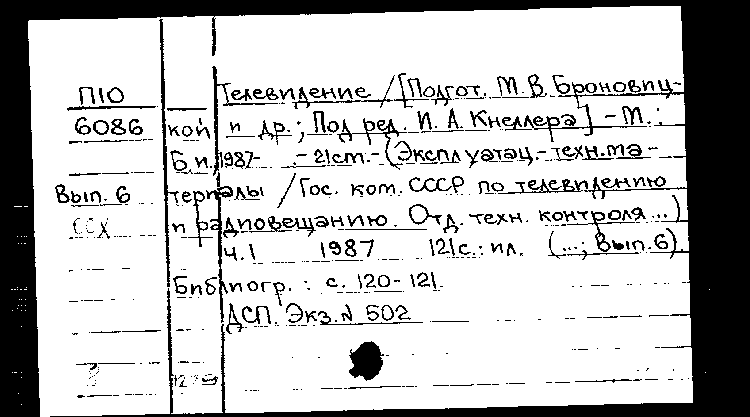 П10 Телевидение / [Подгот. М. В. Бронович-
6086 кой и др.; Под ред. И. А. Кнеллера] - М.:
Б.и., 1987- . - 21 cm. - (Эксплуатац.-техн. ма-
Вып. 6 териалы / Гос. ком. СССР по телевидению
ССХ и радиовещанию. Отд. техн. контроля...)
ч. 1 1987 121 с.: ил. (...; Вып. 6).
Библиогр.: с. 120-121.
ДСП. Экз. N 502